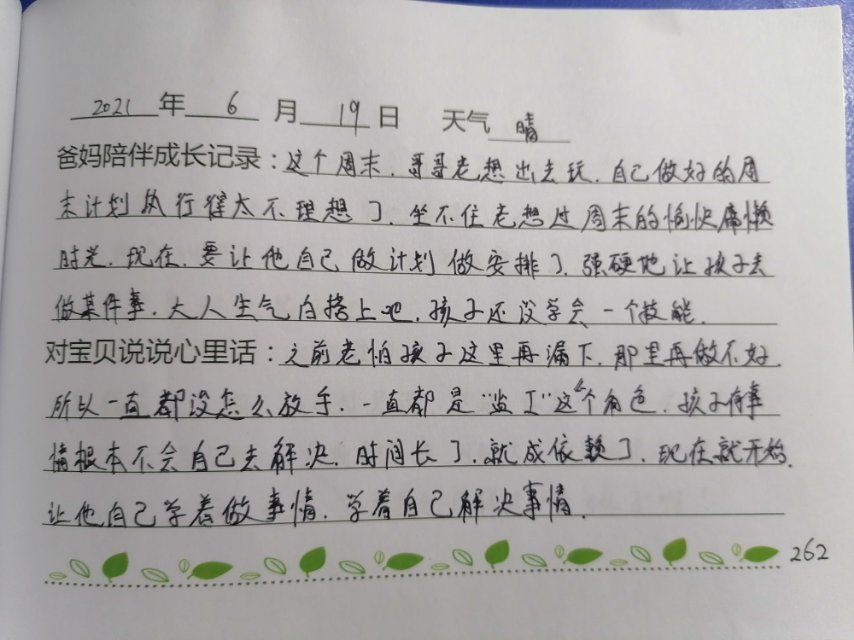 2021年6月19日 天气 晴
爸妈陪伴成长记录：这个周末，哥哥老想出去玩，自己做好的周
末计划执行得太不理想了，坐不住老想过周末的愉快慵懒
时光，现在，要让他自己做计划做安排了，强硬地让孩子去
做某件事，大人生气白搭上吧，孩子还没学会一个技能，
对宝贝说说心里话：之前老怕孩子这里再漏下，那里再做不好，
所以一直都没怎么放手，一直都是“监工”这个角色，孩子有事
情根本不会自己去解决，时间长了，就成依赖了，现在就开始，
让他自己学着做事情，学着自己解决事情，
262